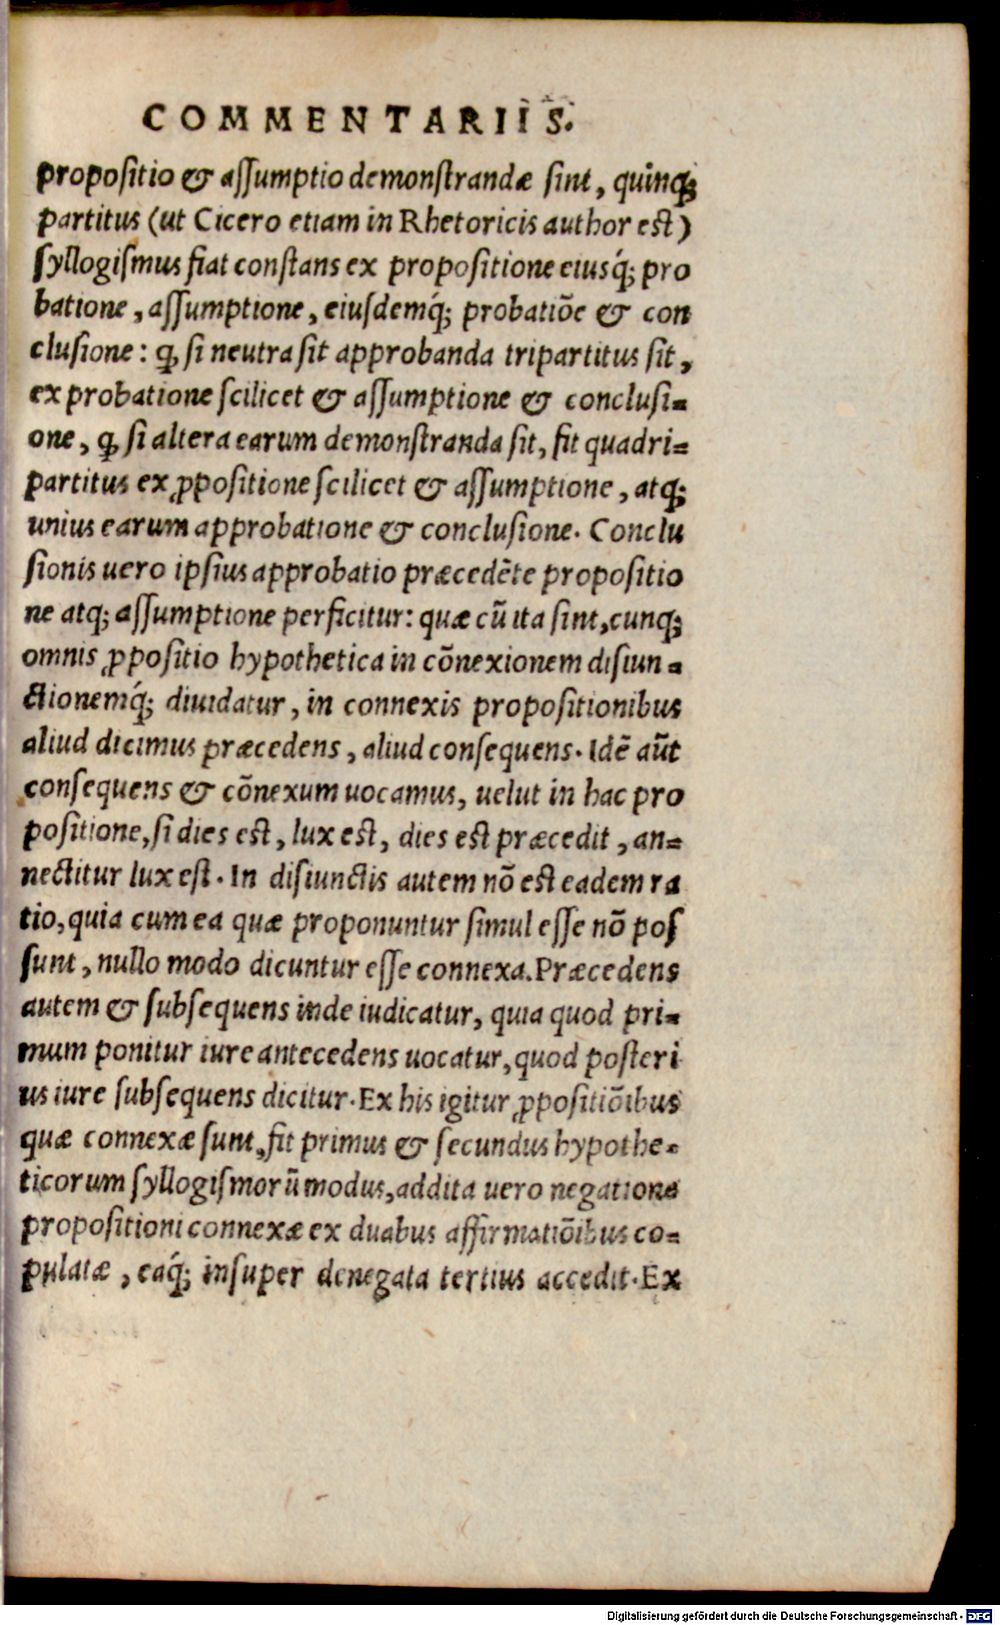 COMMENTARIIS.
propositio & aſſumptio demonſtrandæ ſint, quinq;
partitus (ut Cicero etiam in Rhetoricis author eſt)
ſyllogiſmus fiat conſtans ex propoſitione eiusq́; pro
batione, aſſumptione, eiuſdemq́; probatiōe & con
cluſione: ꝙ ſi neutra ſit approbanda tripartitus ſit,
ex probatione ſcilicet & aſſumptione & concluſi-
one, ꝙ ſi altera earum demonſtranda ſit, fit quadri-
partitus ex ꝓpoſitione ſcilicet & aſſumptione, atq;
unius earum approbatione & concluſione. Conclu
ſionis uero ipſius approbatio præcedēte propoſitio
ne atq; aſſumptione perficitur: quæ cū ita ſint, cunq;
omnis ꝓpoſitio hypothetica in cōnexionem diſiun-
ctionemq́; diuidatur, in connexis propoſitionibus
aliud dicimus præcedens, aliud conſequens. Idē aūt
conſequens & cōnexum uocamus, uelut in hac pro
poſitione, ſi dies eſt, lux eſt, dies eſt præcedit, an-
nectitur lux eſt. In diſiunctis autem nō eſt eadem ra
tio, quia cum ea quæ proponuntur ſimul eſſe nō poſ
ſunt, nullo modo dicuntur eſſe connexa. Præcedens
autem & ſubſequens inde iudicatur, quia quod pri-
mum ponitur iure antecedens uocatur, quod poſteri
us iure ſubſequens dicitur. Ex his igitur ꝓpoſitiōibus
quæ connexæ ſunt, fit primus & ſecundus hypothe-
ticorum ſyllogiſmorū modus, addita uero negatione
propoſitioni connexæ ex duabus affirmatiōibus co-
pulatæ, eaq́; inſuper denegata tertius accedit. Ex
Digitalisierung gefördert durch die Deutsche Forschungsgemeinschaft - DFG